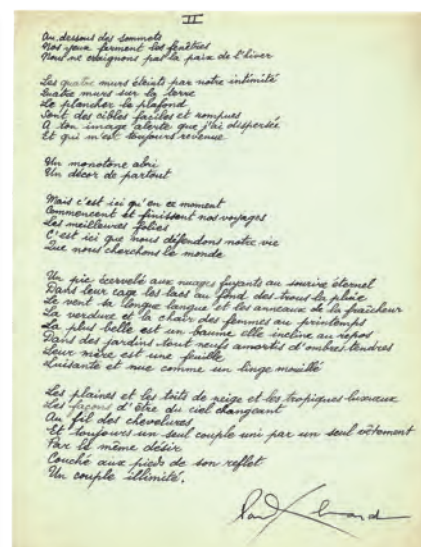 II
Au dessous des sommets
Nos yeux ferment les fenêtres
Nous ne craignons pas la paix de l'hiver
Les quatre murs éteints par notre intimité
Quatre murs sur la terre
Le plancher le plafond
Sont des cibles faciles et rompues
A ton image alerte que j'ai dispersée
Et qui m'est toujours revenue.
Un monotone abri
Un décor de partout
Mais c'est ici qu'en ce moment
Commencent et finissent nos voyages
Les meilleures folies
C'est ici que nous défendons notre vie
Que nous cherchons le monde
Un pic écervelé aux nuages fuyants au sourire éternel
Dans leur cage les lacs au fond des trous la pluie
Le vent sa longue langue et les anneaux de la fraîcheur
La verdure et la chair des femmes au printemps
La plus belle est un baume elle incline au repos
Dans des jardins tout neufs amortis d'ombres tendres
Leur mère est une feuille
Luisante et nue comme un linge mouillé
Les plaines et les toits de neige et les tropiques luxueux
Les façons d'être du ciel changeant
Au fil des chevelures
Et toujours un seul couple uni par un seul vêtement
Par le même désir
Couché aux pieds de son reflet
Un couple illimité.
Paul Eluard